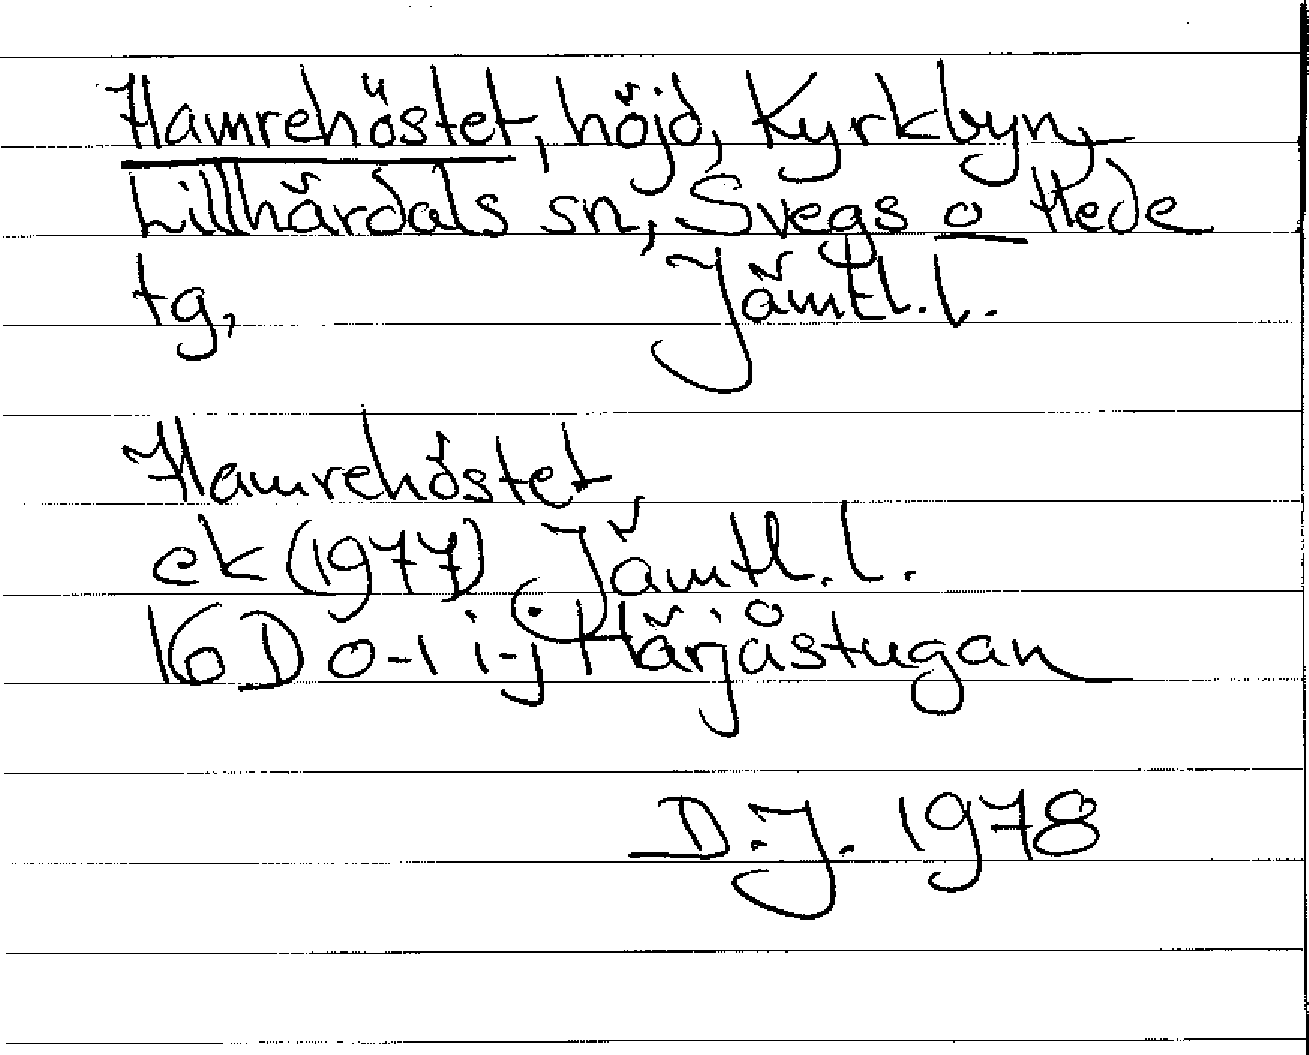 Hamrehöstet, höjd, Kyrkbyn,
Lillhärdals sn, Svegs o Hede
tg, Jämtl. l.
Hamrehöstet
ek (1977) Jämtl. l.
16 D 0-1 i-j Härjåstugan
D.J. 1978